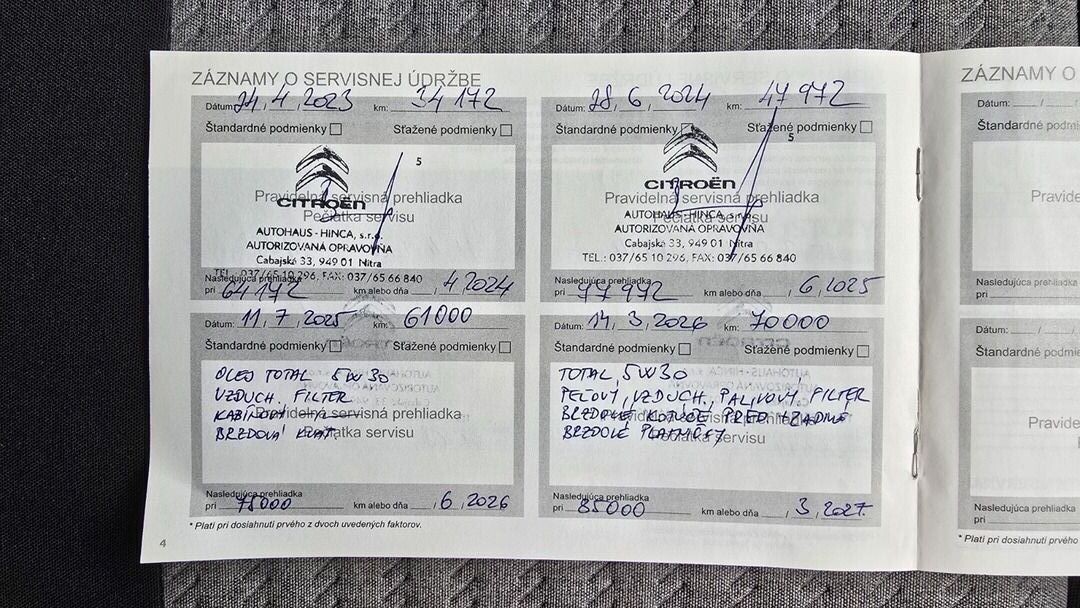 ZÁZNAMY O SERVISNEJ ÚDRŽBE
Dátum: 24, 4, 2023 km: 34 172
Štandardné podmienky Sťažené podmienky
5
CITROËN
Pravidelná servisná prehliadka
Pečiatka servisu
AUTOHAUS - HINCA, s.r.o.
AUTORIZOVANÁ OPRAVOVŇA
Cabajská 33, 949 01 Nitra
TEL.: 037/65 10 296, FAX: 037/65 66 840
Nasledujúca prehliadka
pri 64172 km alebo dňa , 4 2024
Dátum: 28, 6, 2024 km: 47 972
Štandardné podmienky Sťažené podmienky
5
CITROËN
Pravidelná servisná prehliadka
Pečiatka servisu
AUTOHAUS - HINCA, s.r.o.
AUTORIZOVANÁ OPRAVOVŇA
Cabajská 33, 949 01 Nitra
TEL.: 037/65 10 296, FAX: 037/65 66 840
Nasledujúca prehliadka
pri 77972 km alebo dňa , 6, 2025
Dátum: 11, 7, 2025 km: 61000
Štandardné podmienky Sťažené podmienky
OLEJ TOTAL 5W30
VZDUCH. FILTER
KABÍNOVÝ
Pravidelná servisná prehliadka
BRZDOVÁ KVAP.
Pečiatka servisu
Nasledujúca prehliadka
pri 75000 km alebo dňa , 6, 2026
Dátum: 14, 3, 2026 km: 70000
Štandardné podmienky Sťažené podmienky
TOTAL, 5W30
PEĽOVÝ, VZDUCH, PALIVOVÝ FILTER
BRZDOVÉ KOTÚČE PRED + ZADNÉ
Pravidelná servisná prehliadka
BRZDOVÉ PLATNIČKY
Pečiatka servisu
Nasledujúca prehliadka
pri 85000 km alebo dňa , 3, 2027
* Platí pri dosiahnutí prvého z dvoch uvedených faktorov.
4
ZÁZNAMY O
Dátum:
Štandardné podm
Pravide
Nasledujúca prehliadka
pri
Dátum:
Štandardné podm
Pravide
Nasledujúca prehliadka
pri
* Platí pri dosiahnutí prvého